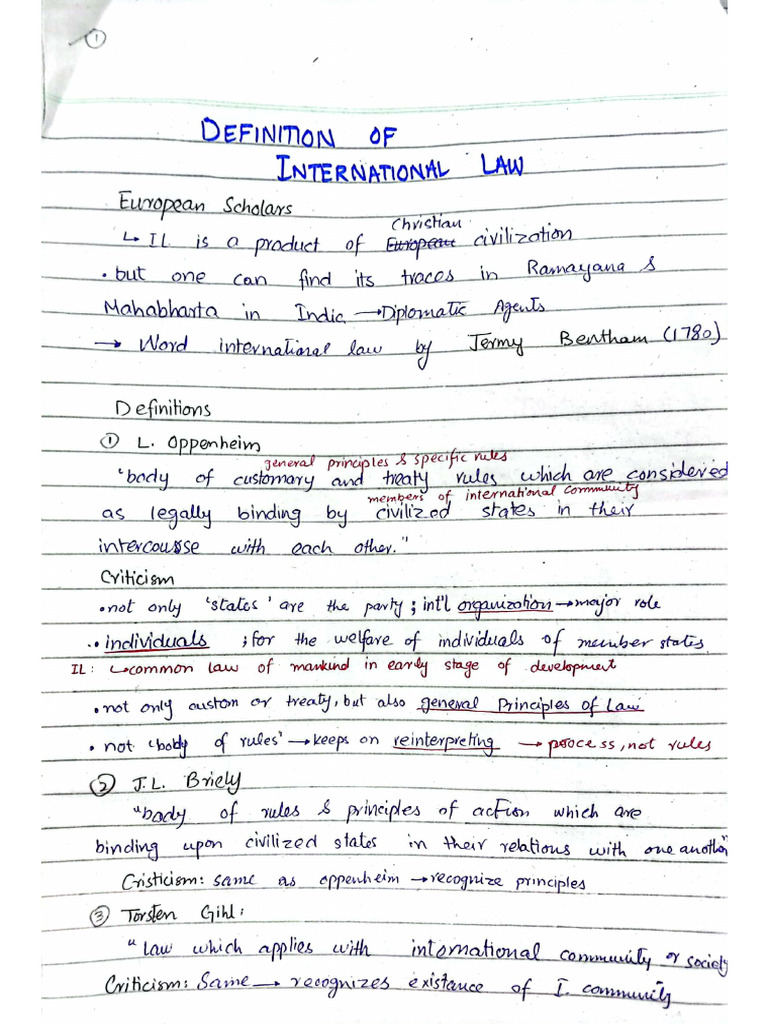 1
DEFINITION OF
INTERNATIONAL LAW
European Scholars
Christian
↳ IL is a product of European civilization
• but one can find its traces in Ramayana &
Mahabharta in India → Diplomatic Agents
→ Word international law by Jermy Bentham (1780)
Definitions
① L. Oppenheim
general principles & specific rules
"body of customary and treaty rules which are considered
members of international community
as legally binding by civilized states in their
intercourse with each other."
Criticism
• not only 'states' are the party; int'l organization → major role
• • individuals ; for the welfare of individuals of member states.
IL: ↳ common law of mankind in early stage of development
• not only custom or treaty, but also general Principles of Law
• not 'body of rules' → keeps on reinterpreting → process, not rules
② J.L. Briely
"body of rules & principles of action which are
binding upon civilized states in their relations with one another"
Cristicism: same as oppenheim → recognize principles
③ Torsten Gihl:
"law which applies with international community or society"
Criticism: Same → recognizes existance of I. community